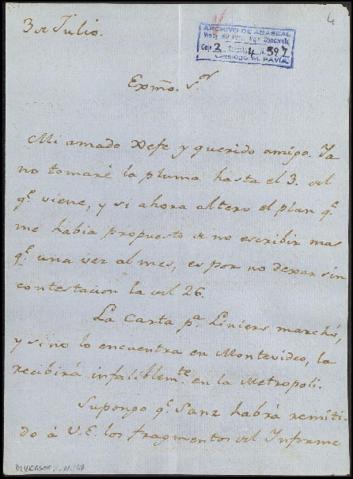 4
3 de Julio.
ARCHIVO DE ABASCAL
Caja 2
4
597
Exmo. Sor.
Mi amado Xefe y querido amigo. Ya
no tomaré la pluma hasta el 3. del
qe. viene, y si ahora altero el plan qe.
me habia propuesto de no escribir mas
qe. una vez al mes, es por no dexar sin
contestacion la del 26.
La carta pa. Liniers marchó,
y si no lo encuentra en Montevideo, la
recibirá infaliblemte. en la Metropoli.
Supongo qe. Sanz habrá remiti-
do á V.E. los fragmentos del Informe